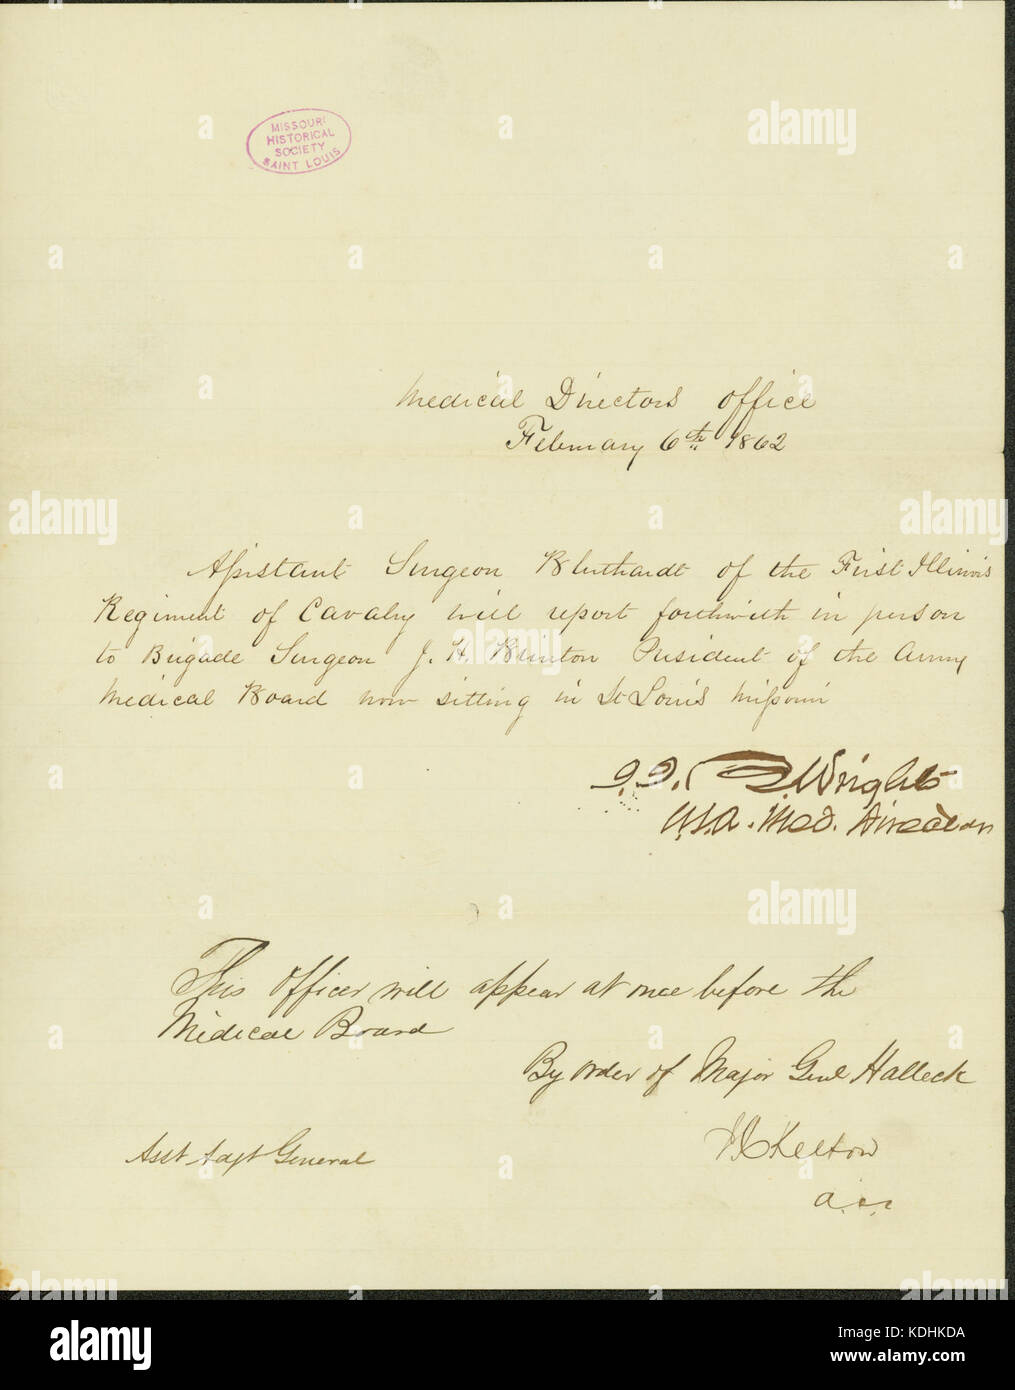 MISSOURI
HISTORICAL
SOCIETY
SAINT LOUIS
Medical Directors Office
February 6th 1862
Assistant Surgeon of the First Illinois
Regiment of Cavalry will report forthwith in person
to Brigade Surgeon J. H. Brinton President of the Army
Medical Board now sitting in St Louis Missouri
Wright
U.S.A. Med. Director
This Officer will appear at once before the
Medical Board
By order of Major Genl Halleck
JC Kelton
Asst Adjt General
a
alamy
alamy
Image ID: KDHKDA
www.alamy.com